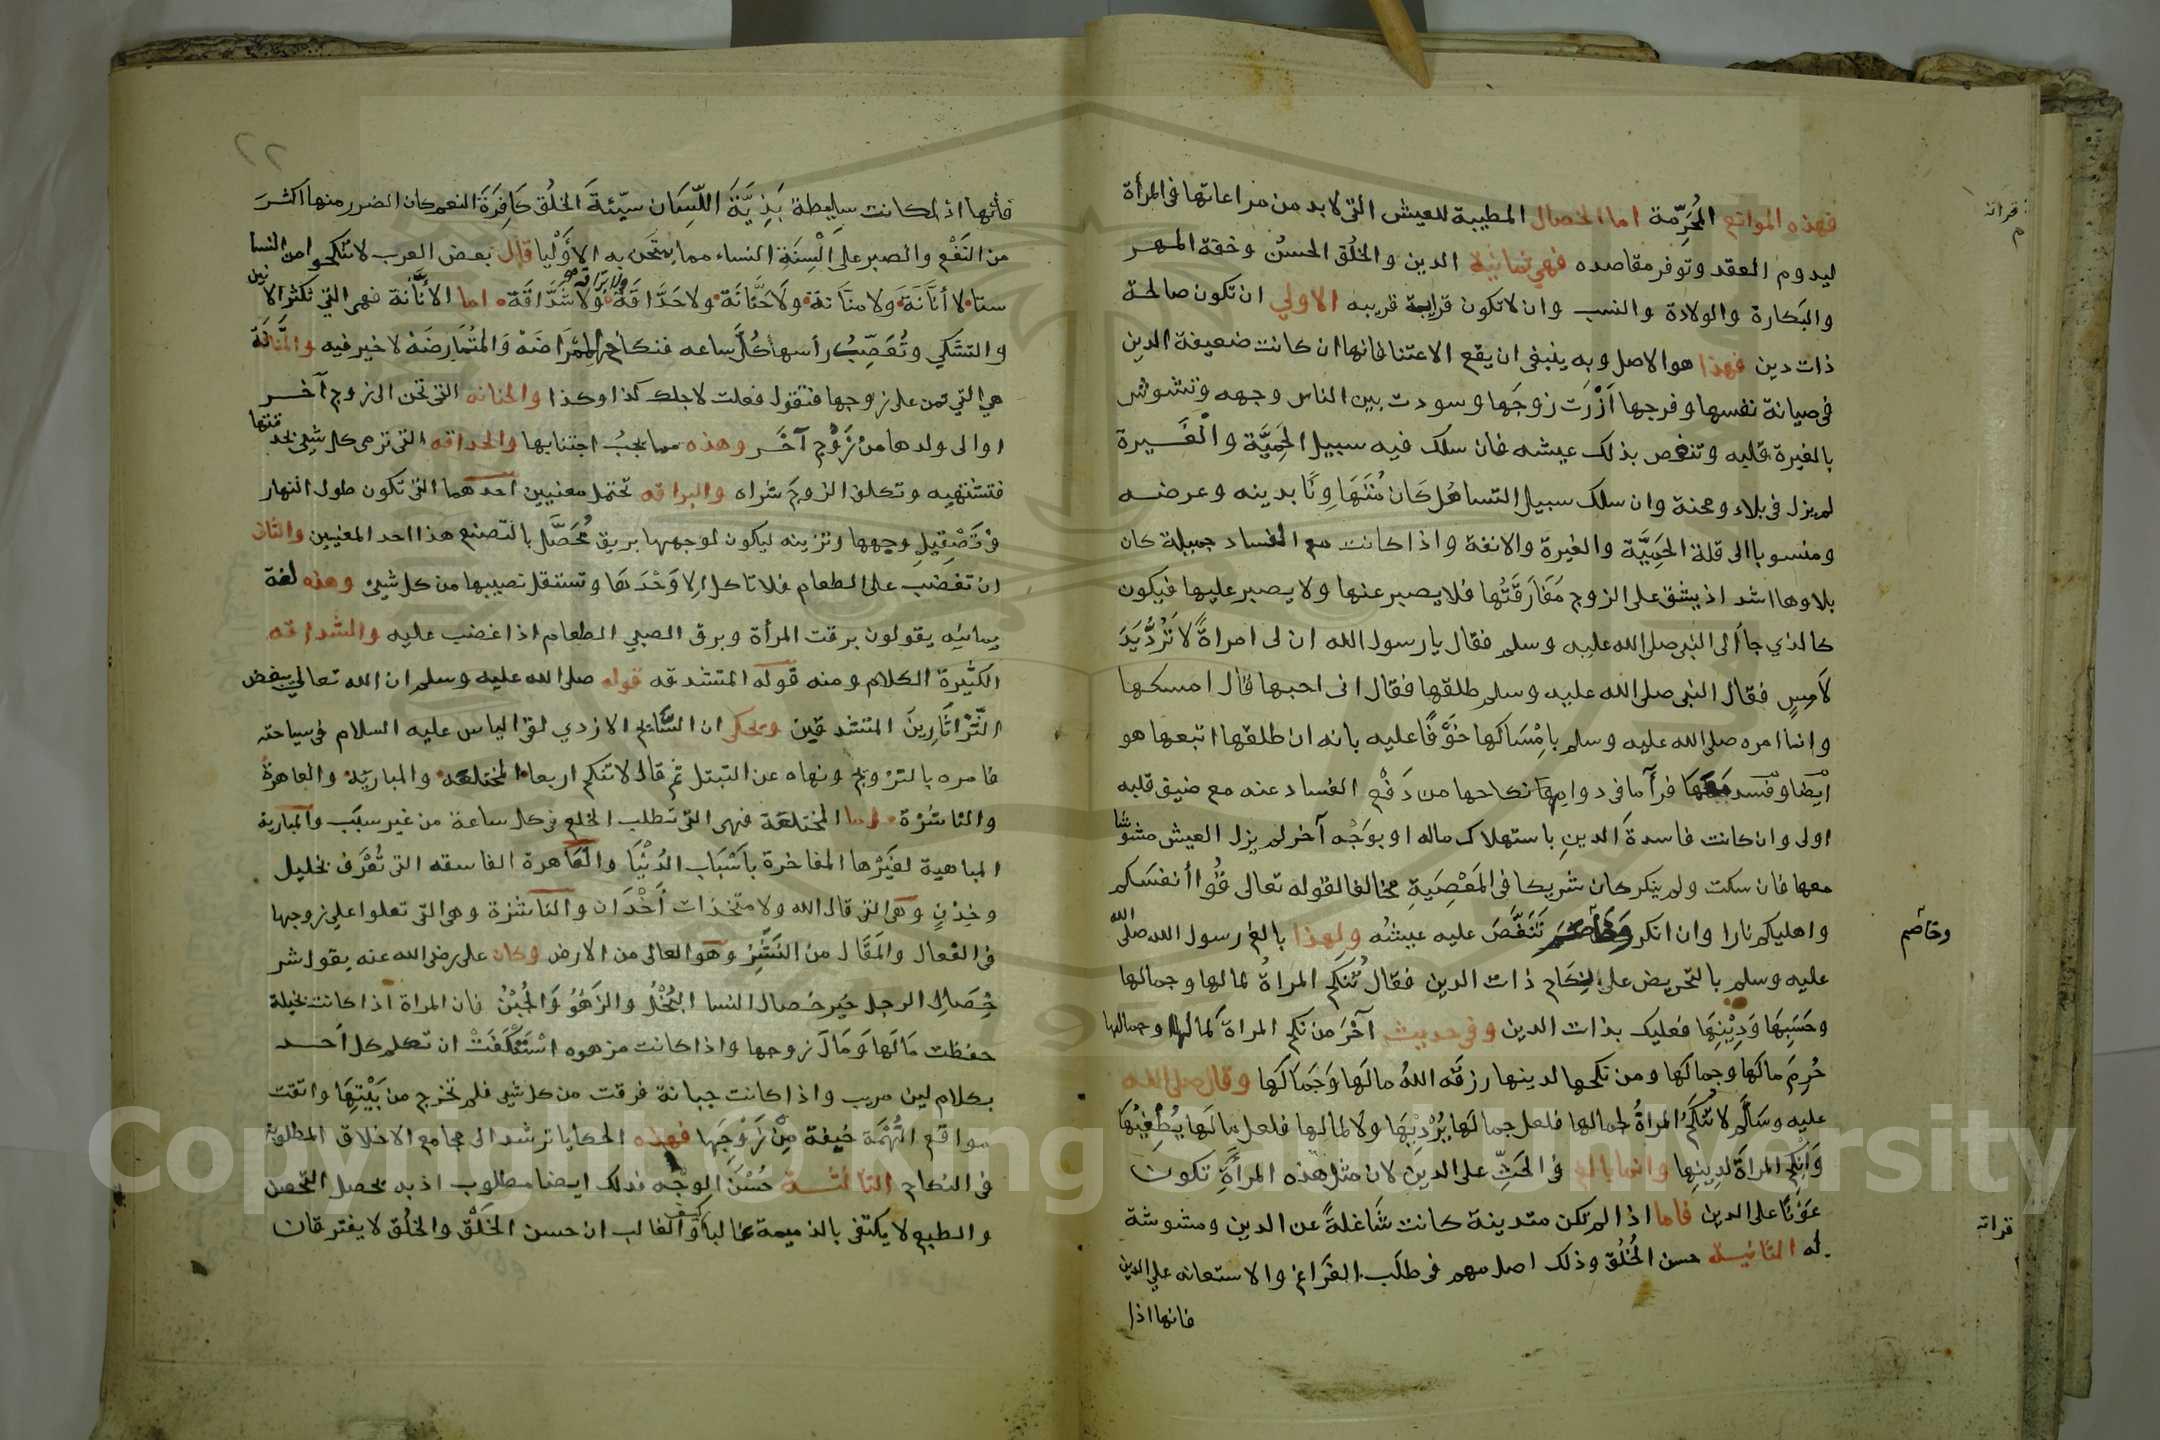 فهذه الموانع المُحَرِّمة اما الخصال المطيبة للعيش التي لابد من مراعاتها في المرأة
ليدوم العقد وتوفر مقاصده فهي ثمانية الدين والخُلق الحسن وخفة المهر
والبكارة والولادة والنسب وان لا تكون قرابة قريبه الاولي ان تكون صالحة
ذات دين فهذا هو الاصل وبه ينبغي ان يقع الاعتنا فانها ان كانت ضعيفة الدين
في صيانة نفسها وفرجها اَزْرَت زوجَها وسودت بين الناس وجهه وتشوش
بالغيرة قلبه وتنغص بذلك عيشه فان سلك فيه سبيل الحَمِيَّة والْغَيرة
لم يزل في بلاء ومحنة وان سلك سبيل التساهُل كَان مُتَهَاوِنًا بدينه وعرضه
ومنسوبا الى قلة الحَمِيَّة والغيرة والانفة واذا كانت مع الفساد جميلة كان
بلاوها اشد اذ يشق على الزوج مَفَارَقَتُها فلا يصبر عنها ولا يصبر عليها فيكون
كالذي جا اَلى النبى صلى الله عليه وسلم فقال يا رسول الله ان لى امراةً لاَ تَرُدُّ يَدَ
لاَمِسٍ فقال النبى صلى الله عليه وسلم طلقها فقال انى احبها قال امسكها
وانما امره صلى الله عليه وسلم بامْسَاكها خَوْفًا عليه بانه ان طلقها اتبعها هو
ايضا وفسد معها فرآما في دوام نكاحها من دَفْع الفساد عنه مع ضيق قلبه
اولى وان كانت فاسدةَ الدينِ باستهلاك ماله او بوَجْه آخر لم يزل العيش مشوشا
معها فان سكت ولم ينكر كان شريكا في المَعْصَيَةِ مخالفا لقوله تعالى قُوا أنفسَكم
واهليكم نارا وان انكر وخاصم تَنَغَّصَ عليه عيشُه ولهذا بالغ رسول الله صلى الله
وخاصم
عليه وسلم بالتحريض على نكاح ذات الدين فقال تُنكح المراةُ لمالها وجمالها
وحَسَبِهَا وَدِيْنِهَا فعليك بذات الدين وفى حديث آخَرَ من نكح المراةَ لمالها وجمالها
حُرِمَ مالَها وجمالَها ومن نكحها لدينها رزقَه اللهُ مالَها وَجَمَالَها وقال صلى الله
عليه وسَلَّم لا تُنكَحُ المراةُ لجمالها فلعل جمالَها يُرْدِيْهَا ولا لمالها فلعل مالَها يُطْغِيْهَا
وَانْكِح المراةَ لدِينِها وانما بالغ في الحَثِّ على الدين لان مثل هذه المرأةِ تكون
عَوْنًا على الدين فاما اذا لم تكن متدينة كانت شاغلةً عن الدين ومشوشة
له الثانية حسن الخُلُق وذلك اصل مهم فى طلَب الفَرَاغ والاستعانه على الدين
فانها اذا
فأنها اذا كانت سلِيطة بَذِيَّةَ اللّسَان سيّئةَ الخلُق كَافِرَةَ النعم كان الضرر منها اكثرَ
من النَفْع والصبر على الْسِنَةِ النساء مما يمتَحَن به الاوْلَيا قال بعض العرب لا تنكحوا من النسا
ستا لا أنَّانَة ولا منَّانة ولا حَنَّانَة ولا حَدَّاقَة ولا برّاقة ولا شَدَّاقَة اما الأنَّانة فهى التي تكثر الانين
والتشَكي وتُعَصِّبُ رأسها كُلَّ ساعه فنكاح المِمْرَاضَة وَالمتُمَارِضَة لا خير فيه والمنَّانَة
هي التي تمن على زوجها فتقول فعلت لاجلك كذا وكذا والحنانه التى تحن الى زوج آخر
اوالى ولدها من زَوْج آخَر وهذه مما يجبُ اجتنابها والحداقه التى ترمى كل شيى بحدقتها
فتشتهيه وتكلف الزوجَ شراه والبراقه تحتمل معنيين احدهما التى تكون طول النهار
في تَصْقِيلِ وجهها وتزينه ليكون لوجهها بريق مُحَصَّل بالتصنع هذا احد المعنيين والثان
ان تغضب على الطعام فلا تاكل الا وَحْدَهَا وتستقل نصيبها من كل شيئ وهذه لغة
يمانيه يقولون برقت المرأة وبرق الصبي الطعام اذا غضب عليه والشداقه
الكثيرة الكلام ومنه قوله المتشدقه قوله صلى الله عليه وسلم ان الله تعالى يبغض
الثَّرْثَارِينَ المتشدقين ويحكى ان السَّايح الازدي لقى الياس عليه السلام فى سياحته
فامره بالتزويج ونهاه عن التبتل ثم قال لا تنكح اربعا المختلعه والمباريَة والعاهرة
والناشزة اما المختلعَة فهى التى تطلب الخلع في كل ساعة من غير سبَب والمبارية
المباهية لغَيْرها المفاخرة باَسْبَاب الدُنْيَا والعَاهرة الفاسقه التى تُعْرَف بخليل
وخِدْنٍ وهى التى قال الله ولا متخذات اَخْدَان والناشزة وهى التي تعلوا على زوجها
فى الفعال والمَقَال من النَشْزِ وهو العالى من الارض وكان على رضى الله عنه يقول شر
خِصَال الرجل خَير خصال النسا البُخْلُ والزَهْوُ وَالجُبْنُ فان المراة اذا كانت بخيلة
حفظت مَالَها وَمَالَ زوجها واذا كانت مزهوه اسْتَنْكَفَتْ ان تكلم كل اَحد
بكلام لين مريب واذا كانت جبانة فرقت من كل شيى فلم تخرج من بَيْتِهَا واتقت
مواقع التُّهْمَة خيفة مِنْ زَوْجِهَا فهذه الحكايا ترشد الى مجامع الاخلاق المطلوبة
فى النكاح الثالثة حُسْنَ الوجْه فذلك ايضا مطلوب اذ به يحصل التحصن
والطبع لا يكتفى بالذميمة غالبا كيف والغالب ان حسن الخَلْق والخلُق لا يفترقان